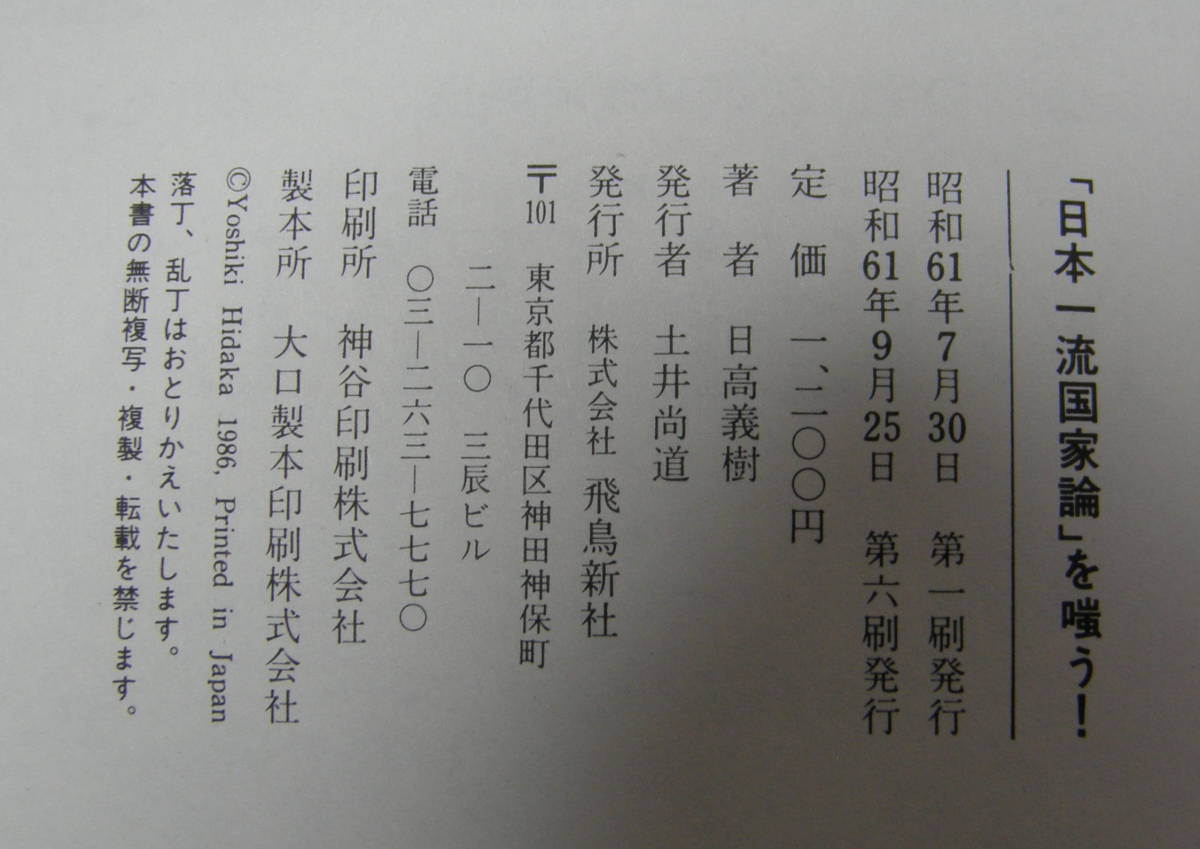 「日本一流国家論」を嗤う！
昭和61年7月30日　第一刷発行
昭和61年9月25日　第六刷発行
定　価　一、二〇〇円
著　者　日高義樹
発行者　土井尚道
発行所　株式会社 飛鳥新社
〒101　東京都千代田区神田神保町
二―一〇　三辰ビル
電話　〇三―二六三―七七七〇
印刷所　神谷印刷株式会社
製本所　大口製本印刷株式会社
©Yoshiki Hidaka 1986, Printed in Japan
落丁、乱丁はおとりかえいたします。
本書の無断複写・複製・転載を禁じます。